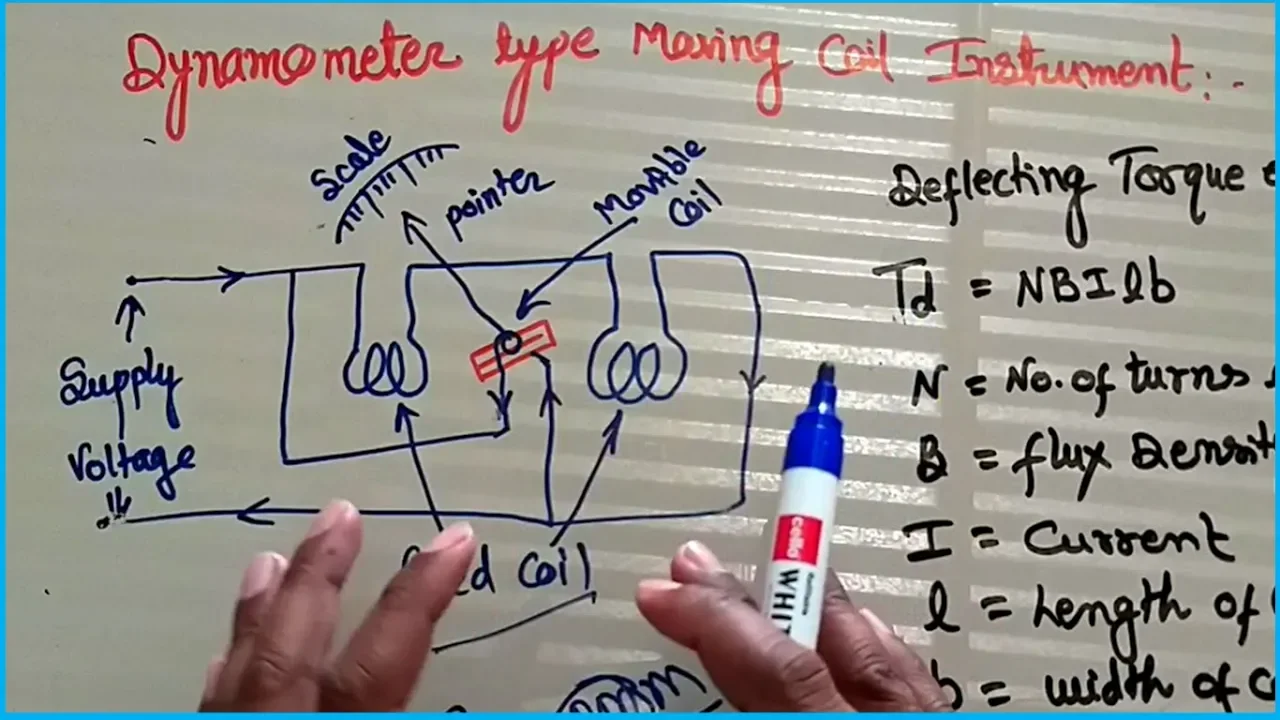 Dynamometer type Moving Coil Instrument:-
Scale
pointer
Movable
Coil
Supply
Voltage
Coil
Deflecting Torque
Td = NBIlb
N = No. of turns
B = flux
I = Current
l = Length of
= width of
cello